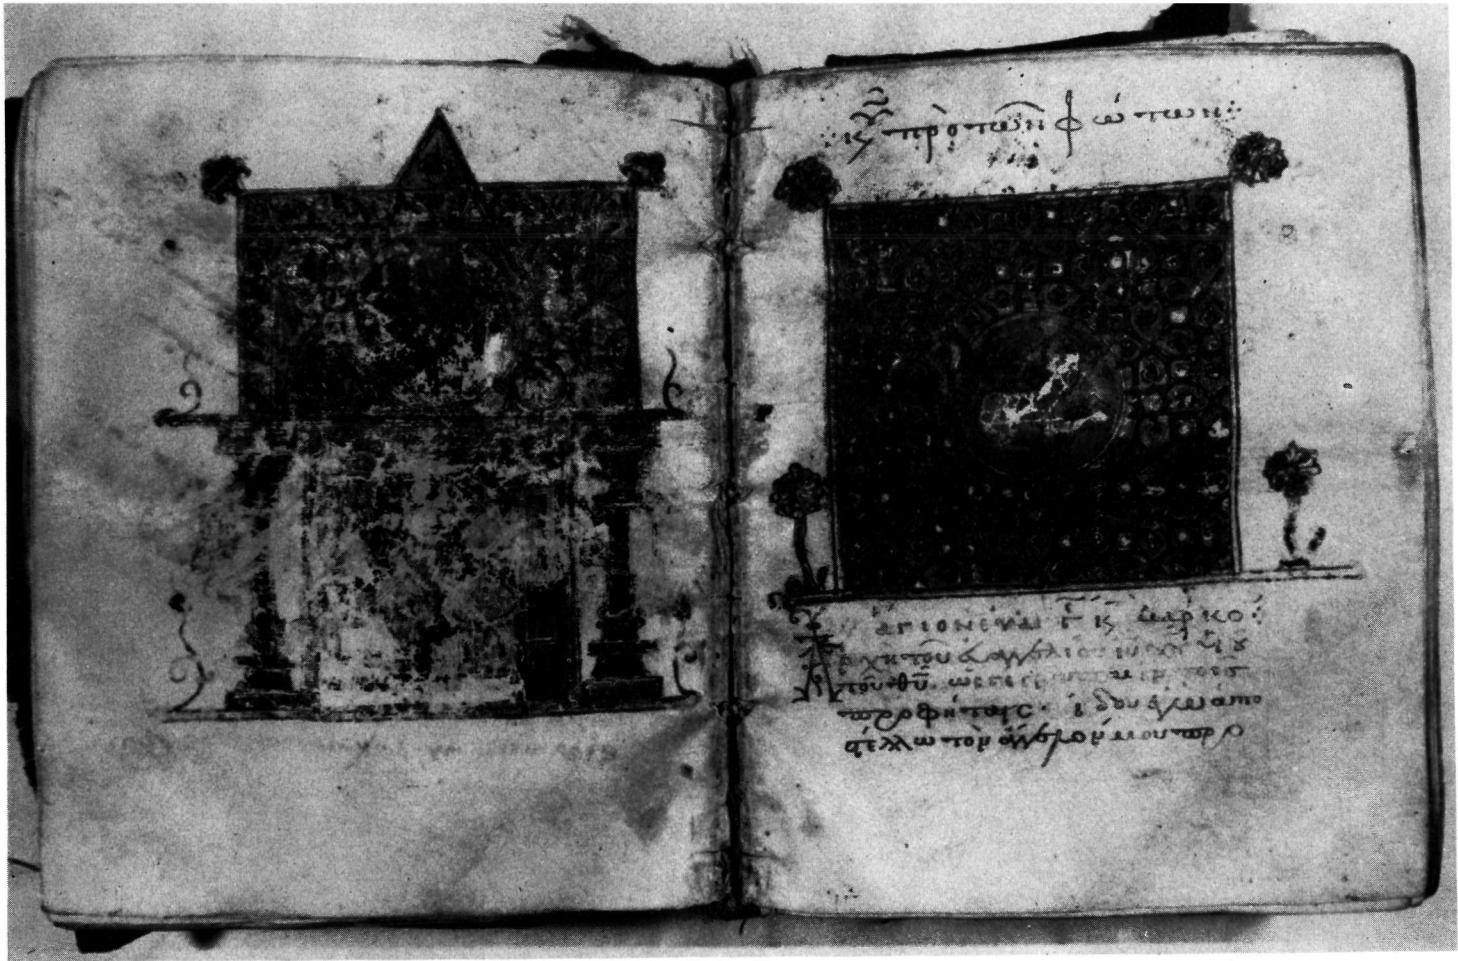 Κυ πρὸ τῶν φώτων:
ἅγιον ευαγγ κ μάρκο:
Ἀρχὴ τοῦ εὐαγγελίου ιυ χυ υἱοῦ
τοῦ θυ ὡς γέγραπται ἐν τοῖς
προφήταις· ἰδοὺ ἐγὼ ἀπο
στέλλω τὸν ἄγγελόν μου πρὸ